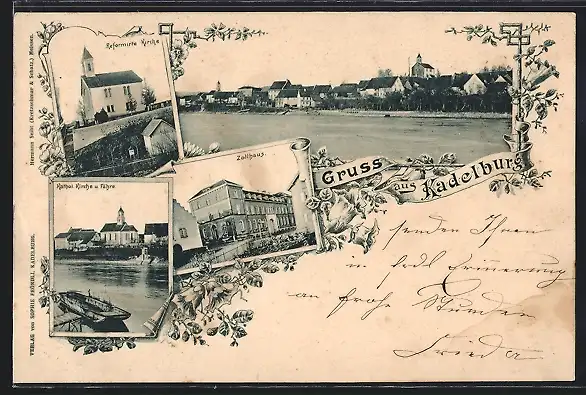 Reformirte Kirche
Zollhaus.
Kathol. Kirche u. Fähre
Gruss
aus Kadelburg
senden Ihnen
in frdl Erinnerung
an frohe Stunden
VERLAG von SOPHIE KADELBURG.
Hermann Seibt Meissen.